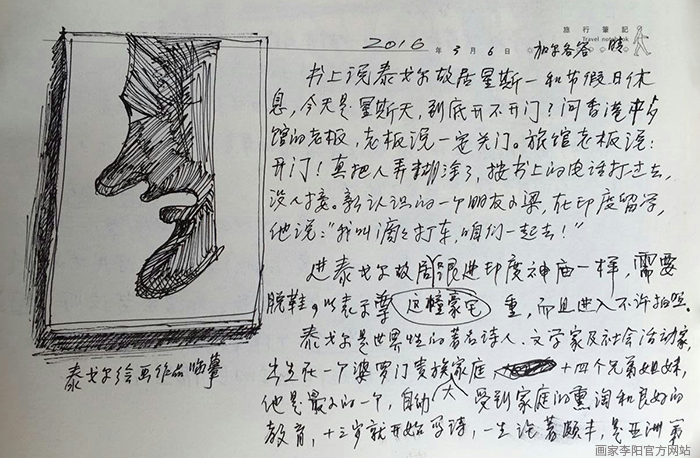 旅行筆記
Travel notebook
2016 年 3 月 6 日 加尔各答 晴
书上说泰戈尔故居星期一和节假日休
息，今天是星期天，到底开不开门？问香港中餐
馆的老板，老板说一定关门。旅馆老板说：
开门！真把人弄糊涂了，按书上的电话打过去，
没人接。新认识的一个朋友小梁，在印度留学，
他说："我叫滴滴打车，咱们一起去！"
进泰戈尔故居跟进印度神庙一样，需要
脱鞋，以表示尊 这幢豪宅 重，而且进入不许拍照。
泰戈尔是世界性的著名诗人、文学家及社会活动家，
出生在一个婆罗门贵族家庭， 十四个兄弟姐妹，
他是最小的一个，自幼 大 受到家庭的熏淘和良好的
教育，十三岁就开始写诗，一生论著颇丰，是亚洲第
泰戈尔绘画作品临摹
画家李阳官方网站